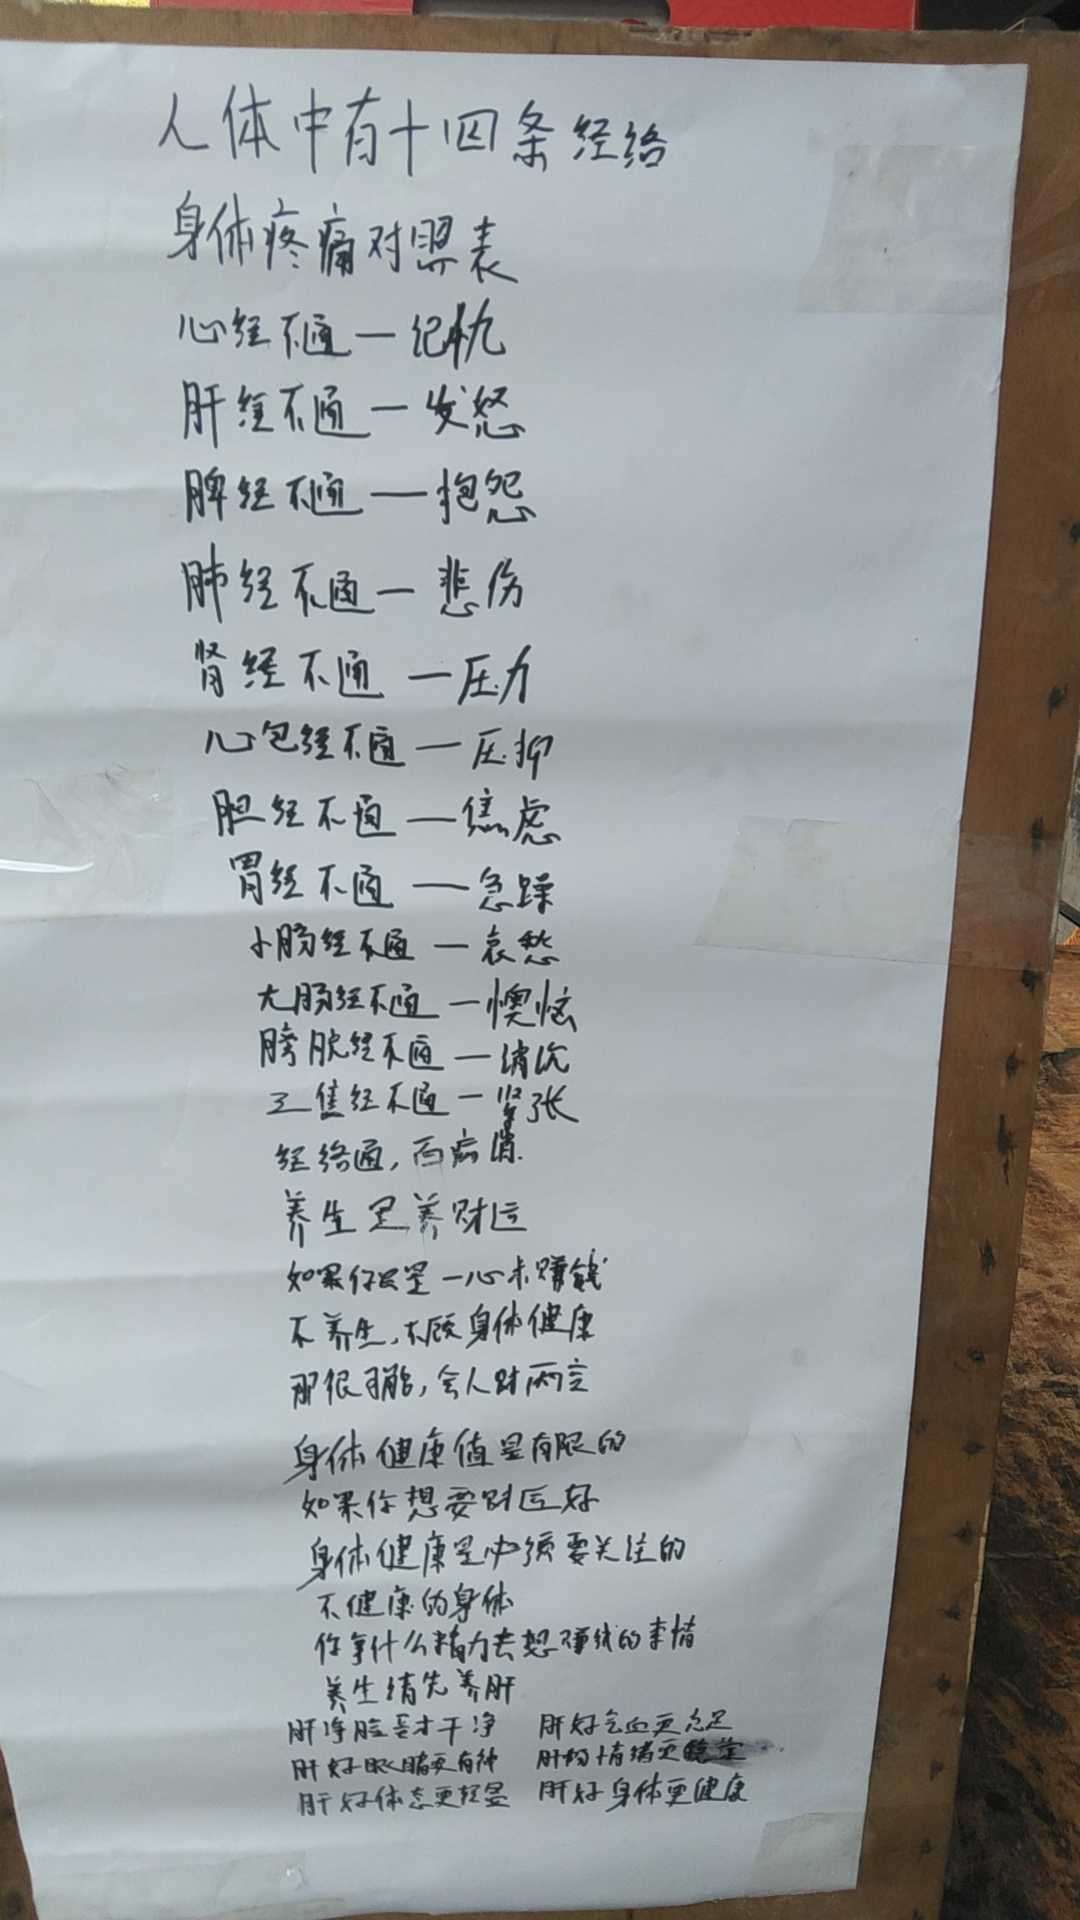 人体中有十四条经络
身体疼痛对照表
心经不通一记仇
肝经不通一发怒
脾经不通一抱怨
肺经不通一悲伤
肾经不通一压力
心包经不通一压抑
胆经不通一焦虑
胃经不通一急躁
小肠经不通一哀愁
大肠经不通一懊恼
膀胱经不通一消沉
三焦经不通一紧张
经络通,百病消.
养生是养财运
如果你只是一心求赚钱
不养生,不顾身体健康
那很可能,会人财两空
身体健康值是有限的
如果你想要财运好
身体健康是必须要关注的
不健康的身体
你拿什么精力去想赚钱的事情
养生请先养肝
肝净脸蛋才干净 肝好气血更充足
肝好眼睛更有神 肝好情绪更稳定
肝好体态更轻盈 肝好身体更健康